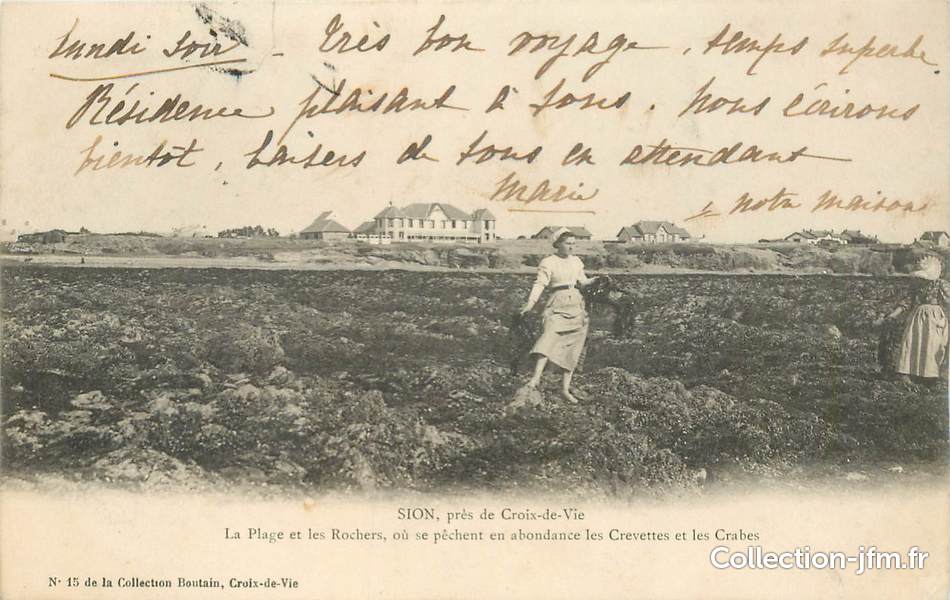 Lundi soir - Très bon voyage, temps superbe.
Résidence plaisant à tous. Nous écrirons
bientôt, baisers de tous en attendant
Marie
notre maison
SION, près de Croix-de-Vie
La Plage et les Rochers, où se pêchent en abondance les Crevettes et les Crabes
Collection-jfm.fr
N° 15 de la Collection Boutain, Croix-de-Vie